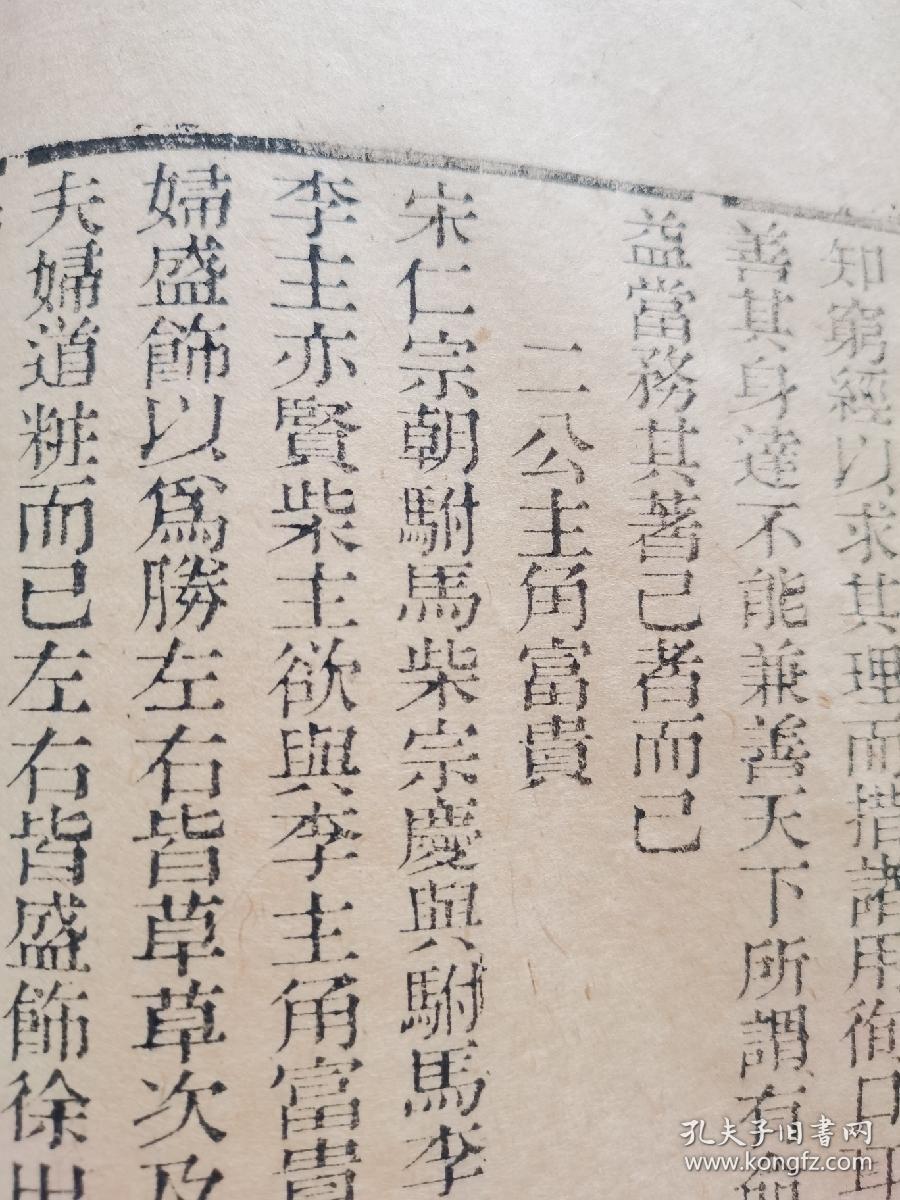 知窮經以求其理而措諸用徇口耳
善其身達不能兼善天下所謂有
益當務其著己者而已
二公主角富貴
宋仁宗朝駙馬柴宗慶與駙馬李
李主亦賢柴主欲與李主角富貴
婦盛飾以爲勝左右皆草草次及
夫婦道粧而已左右皆盛飾徐出
孔夫子旧书网
www.kongfz.com